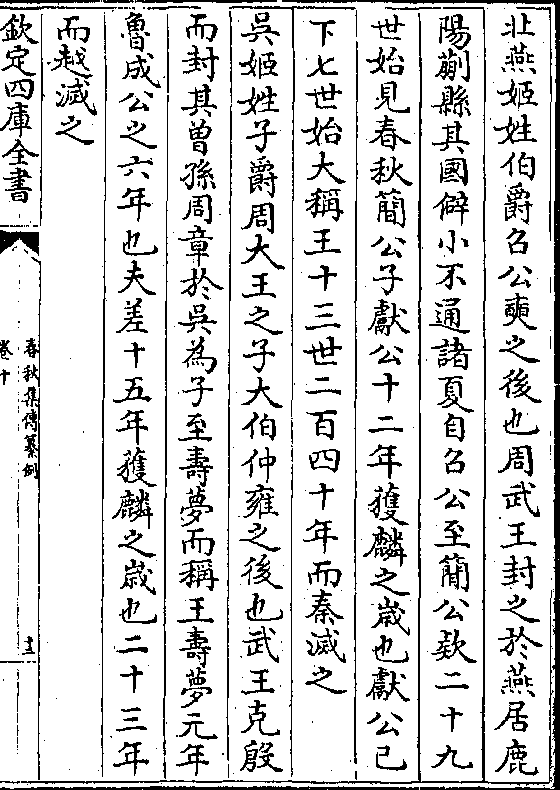 北燕姬姓伯爵召公奭之後也周武王封之於燕居鹿
陽薊縣其國僻小不通諸夏自召公至簡公欵二十九
世始見春秋簡公子獻公十二年獲麟之嵗也獻公已
下七世始大稱王十三世二百四十年而秦滅之
吳姬姓子爵周大王之子大伯仲雍之後也武王克殷
而封其曾孫周章於吳為子至壽夢而稱王壽夢元年
魯成公之六年也夫差十五年獲麟之嵗也二十三年
而越滅之
欽定四庫全書
春秋集傳纂例
卷十
十三